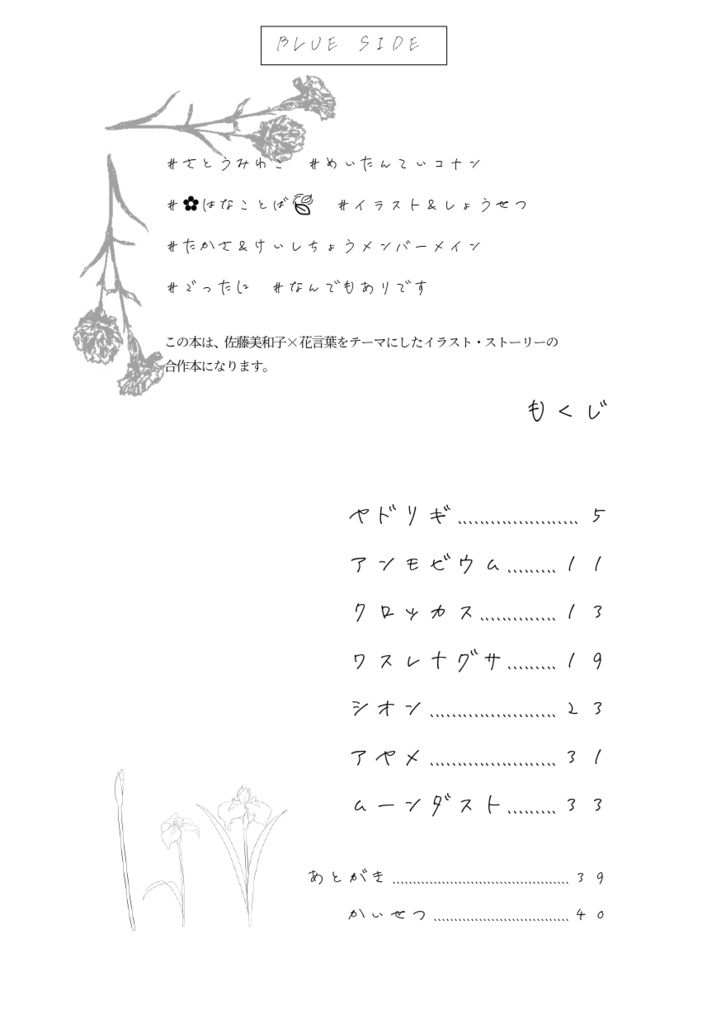 BLUE SIDE
#さとうみわこ #めいたんていコナン
#✿はなことば #イラスト&しょうせつ
#たかさ&けいしちょうメンバーメイン
#ごったに #なんでもありです
この本は、佐藤美和子×花言葉をテーマにしたイラスト・ストーリーの
合作本になります。
もくじ
ヤドリギ…………………… 5
アンモビウム……… 11
クロッカス…………… 13
ワスレナグサ……… 19
シオン…………………… 23
アヤメ…………………… 31
ムーンダスト……… 33
あとがき…………………………………… 39
かいせつ…………………………… 40